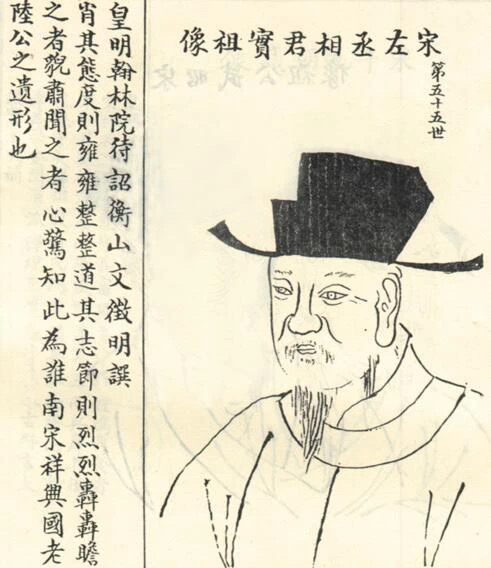 宋左丞相君實祖像
第五十五世
皇明翰林院待詔衡山文徵明譔
肖其態度則雍雍整整道其志節則烈烈轟轟瞻
之者貌肅聞之者心驚知此為誰南宋祥興國老
陸公之遺形也